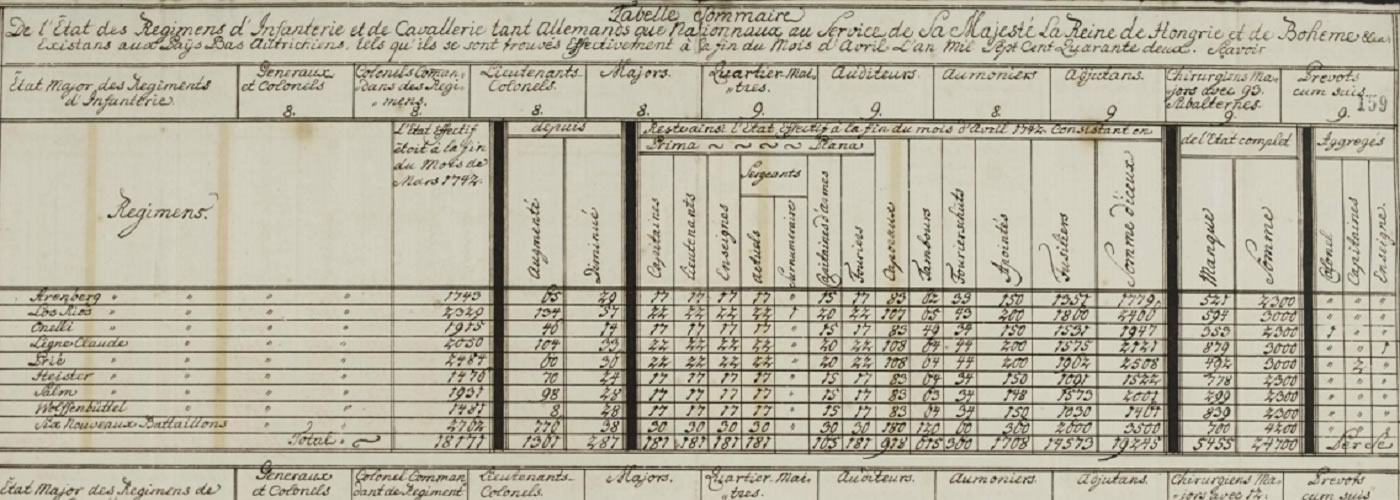 Tabelle Sommaire
De l'Etat des Regimens d'Infanterie et de Cavallerie tant Allemands que Nationnaux au Service de Sa Majesté La Reine de Hongrie et de Boheme
Existans aux Païs Bas Autrichiens, tels qu'ils se sont trouvés Effectivement à la fin du Mois d'Avril L'an Mil Sept Cent Quarante deux. Savoir
Etat Major des Regiments d'Infanterie.
Generaux et Colonels 8.
Colonels Coman-dans des Regi-mens. 8.
Lieutenants Colonels. 8.
Majors. 8.
Quartier Mai-tres. 9.
Auditeurs. 9.
Aumoniers 8.
Adjutans. 9
Chirurgiens Ma-jors avec 93. Subalternes. 9.
Prevots cum suis. 9.
159
Regimens.
L'Etat Effectif étoit à la fin du Mois de Mars 1742.
depuis
Augmenté
Diminué
Reste ainsi l'Etat Effectif à la fin du mois d'Avril 1742. Consistant en
Prima ~ ~ ~ ~ Plana
Capitaines
Lieutenants
Enseignes
Sergeants
actuels
Fouriers
Caporaux
Tambours
Fourierschüts
Apointés
Fusiliers
Somme d'iceux
de l'Etat complet
Manque
Somme
Aggregés
Colonel
Capitaines
Enseigne.
Arenberg " " " " 1743 65 29 17 17 17 17 " 15 17 83 62 33 150 1351 1779 521 2300 " " "
Los Rios " " " 2329 134 57 22 22 22 22 1 20 22 107 65 43 200 1860 2406 594 3000 " " "
Onelli " " " 1915 46 14 17 17 17 17 " 15 17 83 49 34 150 1531 1947 353 2300 1 " "
Ligne Claude " " " 2050 104 33 22 22 22 22 " 20 22 108 64 44 200 1575 2121 879 3000 " " 1
Prié " " " 2484 60 36 22 22 22 22 " 20 22 108 64 44 200 1962 2508 492 3000 " 2 "
Heister " " " 1476 70 24 17 17 17 17 " 15 17 83 64 34 150 1091 1522 778 2300 " " "
Salm " " " 1931 98 28 17 17 17 17 " 15 17 83 63 34 148 1573 2001 299 2300 " " "
Wolffenbüttel " " " 1481 8 28 17 17 17 17 " 15 17 83 64 34 150 1030 1461 839 2300 " " "
Six Nouveaux Battaillons " " 2762 776 38 30 30 30 30 " 30 30 180 120 00 300 2000 3500 700 4200 " " "
Total " ~ 18171 1361 287 181 181 181 181 165 181 918 615 300 1708 14573 19245 5455 24700 Per Se
Etat Major des Regimens de
Generaux et Colonels
Colonel Comman-dant de Regiment
Lieutenants Colonels.
Majors.
Quartier Mai-tres.
Auditeurs.
Aumoniers.
Adjutans.
Chirurgiens Ma-jors avec 12.
Prevots cum suis